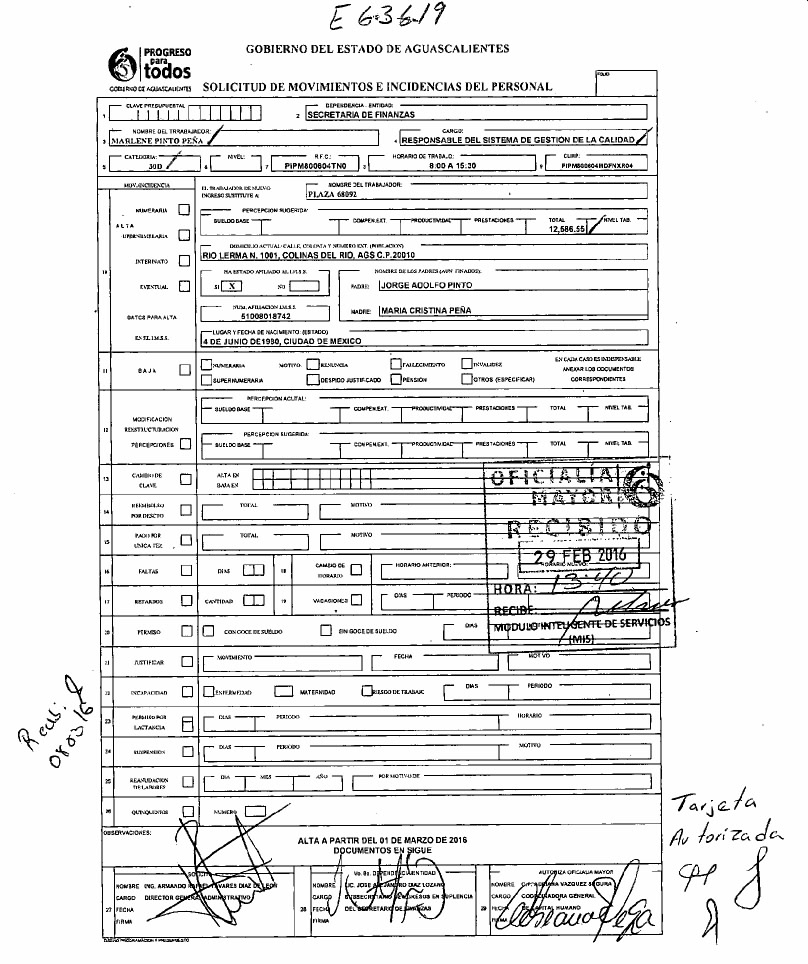 E 63619
PROGRESO
para
todos
GOBIERNO DE AGUASCALIENTES
GOBIERNO DEL ESTADO DE AGUASCALIENTES
SOLICITUD DE MOVIMIENTOS E INCIDENCIAS DEL PERSONAL
FOLIO
1 CLAVE PRESUPUESTAL
2 DEPENDENCIA - ENTIDAD:
SECRETARIA DE FINANZAS
3 NOMBRE DEL TRRABAJADOR:
MARLENE PINTO PEÑA
4 CARGO:
RESPONSABLE DEL SISTEMA DE GESTION DE LA CALIDAD
5 CATEGORIA: 30D
6 NIVEL:
7 R.F.C.: PIPM800604TN0
8 HORARIO DE TRABAJO: 8:00 A 15:30
9 CURP: PIPM800604MDFNXR04
MOV./INCIDENCIA
EL TRABAJADOR DE NUEVO
INGRESO SUSTITUYE A:
NOMBRE DEL TRABAJADOR:
PLAZA 68092
10
ALTA
NUMERARIA
SUPERNUMERARIA
INTERINATO
EVENTUAL
DATOS PARA ALTA
EN EL I.M.S.S.
PERCEPCION SUGERIDA:
SUELDO BASE COMPEN.EXT. PRODUCTIVIDAD PRESTACIONES TOTAL NIVEL TAB.
12,586.55
DOMICILIO ACTUAL: CALLE, COLONIA Y NUMERO EXT. (POBLACION)
RIO LERMA N. 1001, COLINAS DEL RIO, AGS C.P.20010
HA ESTADO AFILIADO AL I.M.S.S.
SI X NO
NOMBRE DE LOS PADRES (AUN FINADOS):
PADRE: JORGE ADOLFO PINTO
NUM. AFILIACION I.M.S.S.
51008018742
MADRE: MARIA CRISTINA PEÑA
LUGAR Y FECHA DE NACIMIENTO: (ESTADO)
4 DE JUNIO DE1980, CIUDAD DE MEXICO
11 BAJA
NUMERARIA MOTIVO: RENUNCIA FALLECIMIENTO INVALIDEZ
SUPERNUMERARIA DESPIDO JUSTIFICADO PENSION OTROS (ESPECIFICAR)
EN CADA CASO ES INDISPENSABLE
ANEXAR LOS DOCUMENTOS
CORRESPONDIENTES
12 MODIFICACION
REESTRUCTURACION
PERCEPCIONES
PERCEPCION ACUTAL:
SUELDO BASE COMPEN.EXT. PRODUCTIVIDAD PRESTACIONES TOTAL NIVEL TAB.
PERCEPCION SUGERIDA:
SUELDO BASE COMPEN.EXT. PRODUCTIVIDAD PRESTACIONES TOTAL NIVEL TAB.
13 CAMBIO DE
CLAVE
ALTA EN
BAJA EN
14 REEMBOLSO
POR DESCTO
TOTAL MOTIVO
15 PAGO POR
UNICA VEZ
TOTAL MOTIVO
16 FALTAS DIAS
18 CAMBIO DE
HORARIO
HORARIO ANTERIOR: HORARIO NUEVO:
17 RETARDOS CANTIDAD
19 VACACIONES DIAS PERIODO
OFICIALIA
MAYOR
RECIBIDO
29 FEB 2016
HORA: 13:40
RECIBE:
MODULO INTELIGENTE DE SERVICIOS
(MIS)
20 PERMISO CON GOCE DE SUELDO SIN GOCE DE SUELDO DIAS
21 JUSTIFICAR MOVIMIENTO FECHA MOTIVO
22 INCAPACIDAD ENFERMEDAD MATERNIDAD RIESGO DE TRABAJO DIAS PERIODO
23 PERMISO POR
LACTANCIA
DIAS PERIODO HORARIO
24 SUSPENSION DIAS PERIODO MOTIVO
25 REANUDACION
DE LABORES
DIA MES AÑO POR MOTIVO DE
26 QUINQUENIOS NUMERO
OBSERVACIONES:
ALTA A PARTIR DEL 01 DE MARZO DE 2016
DOCUMENTOS EN SIGUE
27 SOLICITO
NOMBRE ING. ARMANDO RAFAEL TAVARES DIAZ DE LEON
CARGO DIRECTOR GENERAL ADMINISTRATIVO
FECHA
FIRMA
28 Vo. Bo. DEPENDENCIA/ENTIDAD
NOMBRE LIC. JOSE ALEJANDRO DIAZ LOZANO
CARGO SUBSECRETARIO DE INGRESOS EN SUPLENCIA
FECHA DEL SECRETARIO DE FINANZAS
FIRMA
29 AUTORIZA OFICIALIA MAYOR
NOMBRE C.P. ADRIANA VAZQUEZ SEGURA
CARGO COORDINADORA GENERAL
FECHA DE CAPITAL HUMANO
FIRMA
Tarjeta
Autorizada